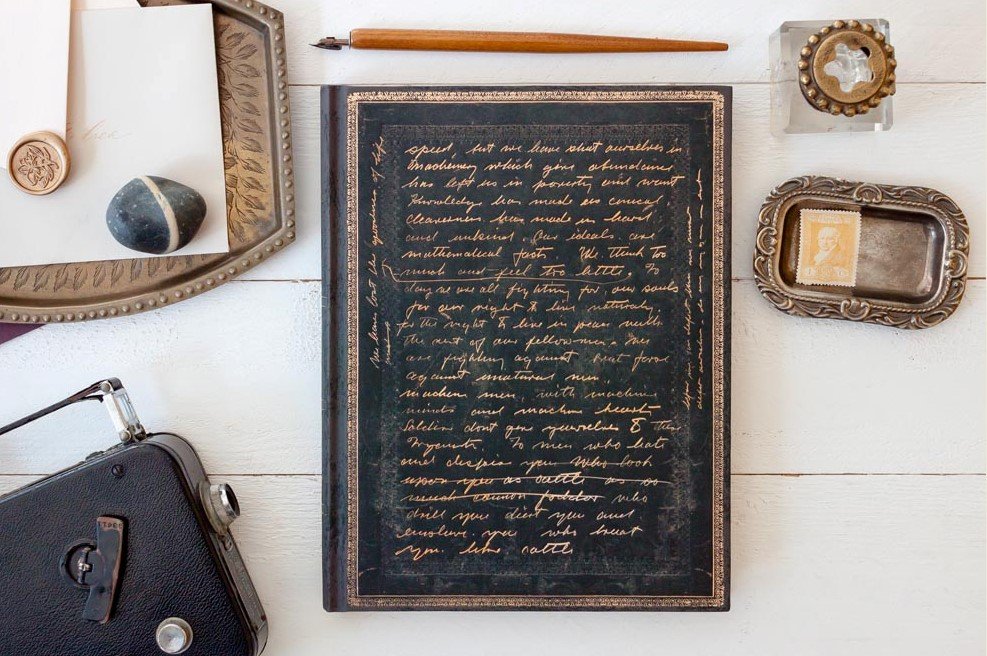 speed, but we have shut ourselves in
machinery which gives abundance
has left us in poverty and want
Knowledge has made us cynical
cleverness has made us hard
and unkind. Our ideals are
mathematical facts. We think too
much and feel too little. To
day we are all fighting for our souls
for our right to live naturally
for the right to live in peace with
the rest of our fellowmen. We
are fighting against brut force
against unatural men,
machine men, with machine
minds and machine hearts
Soldiers dont give yourselves to these
To men who hate
and despise you who look
upon you as cattle as so
much cannon fodder who
drill you diet you and
enslave you who treat
you like cattle
We have lost the